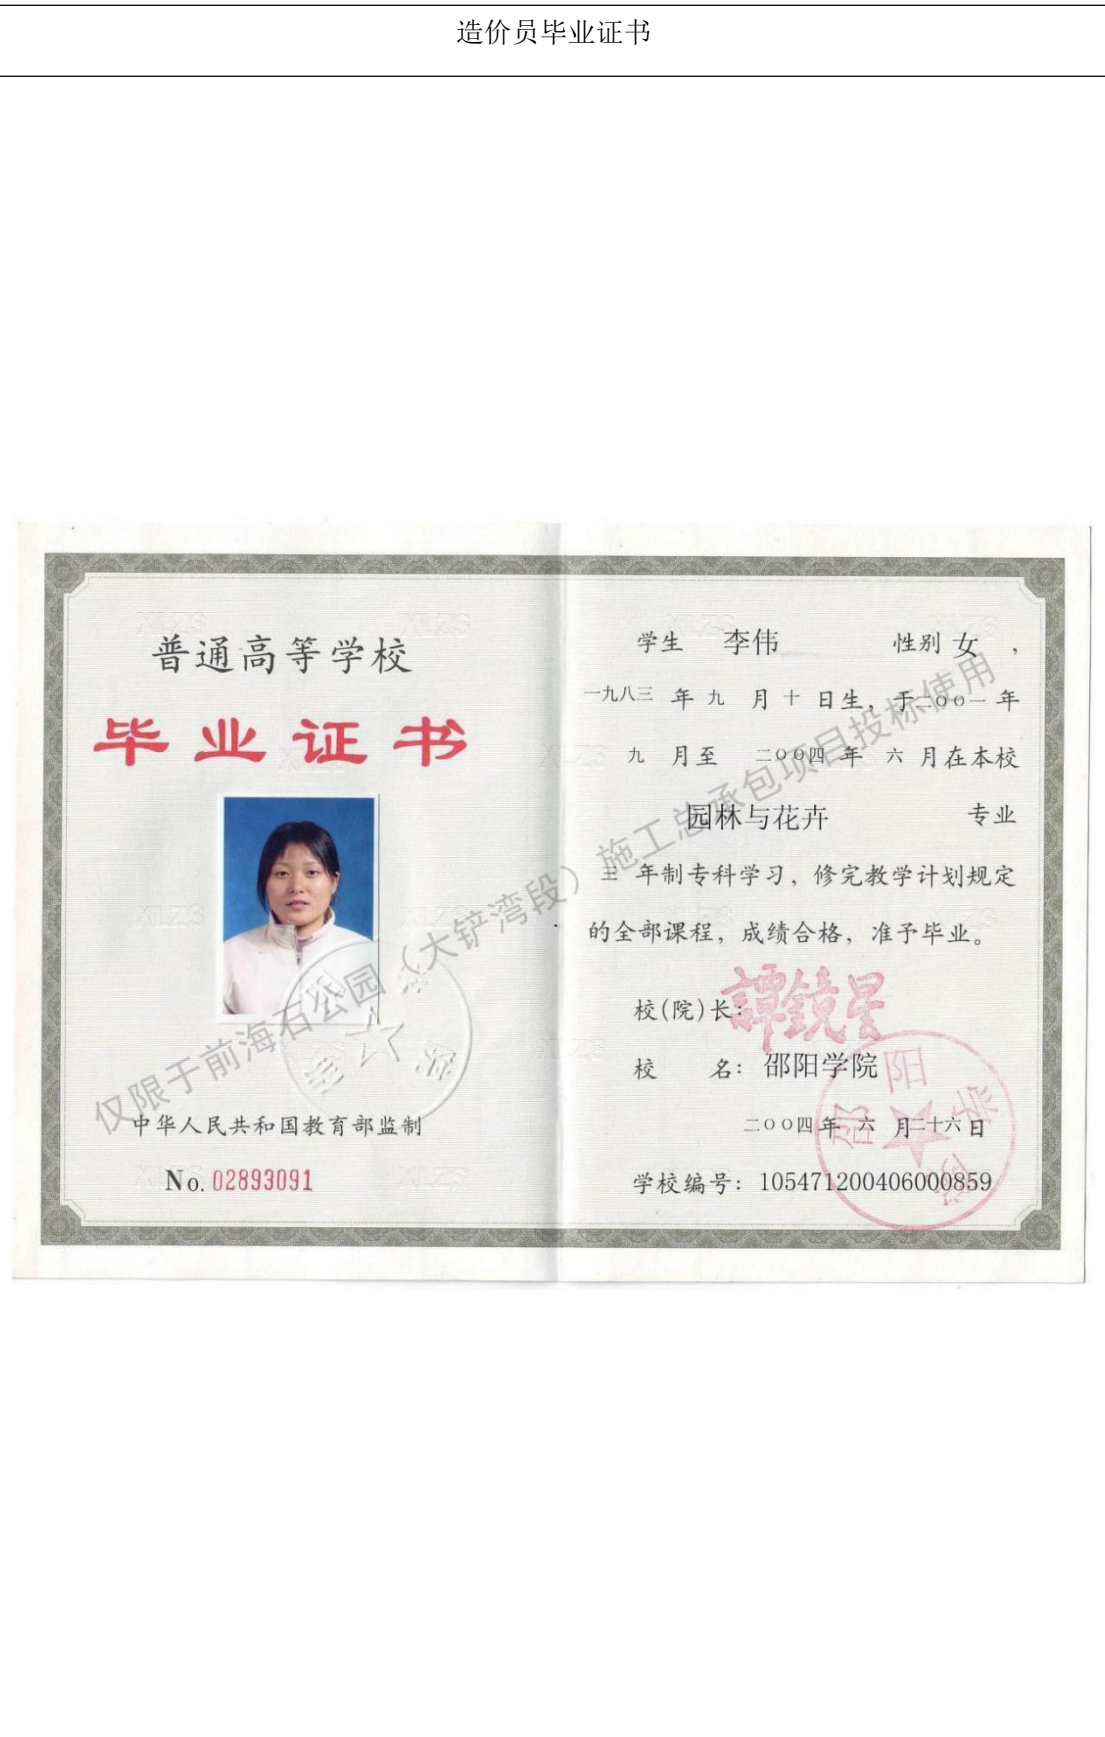 造价员毕业证书
普通高等学校
毕业证书
中华人民共和国教育部监制
No. 02893091
学生 李伟 性别 女，
一九八三 年 九 月 十 日生，于二〇〇一 年
九 月至 二〇〇四 年 六 月在本校
园林与花卉 专业
三 年制专科学习，修完教学计划规定
的全部课程，成绩合格，准予毕业。
校(院)长：譚鏡星
校 名：邵阳学院
二〇〇四年 六 月二十六日
学校编号：105471200406000859
邵阳学院
仅限于前海石公园（大铲湾段）施工总承包项目投标使用